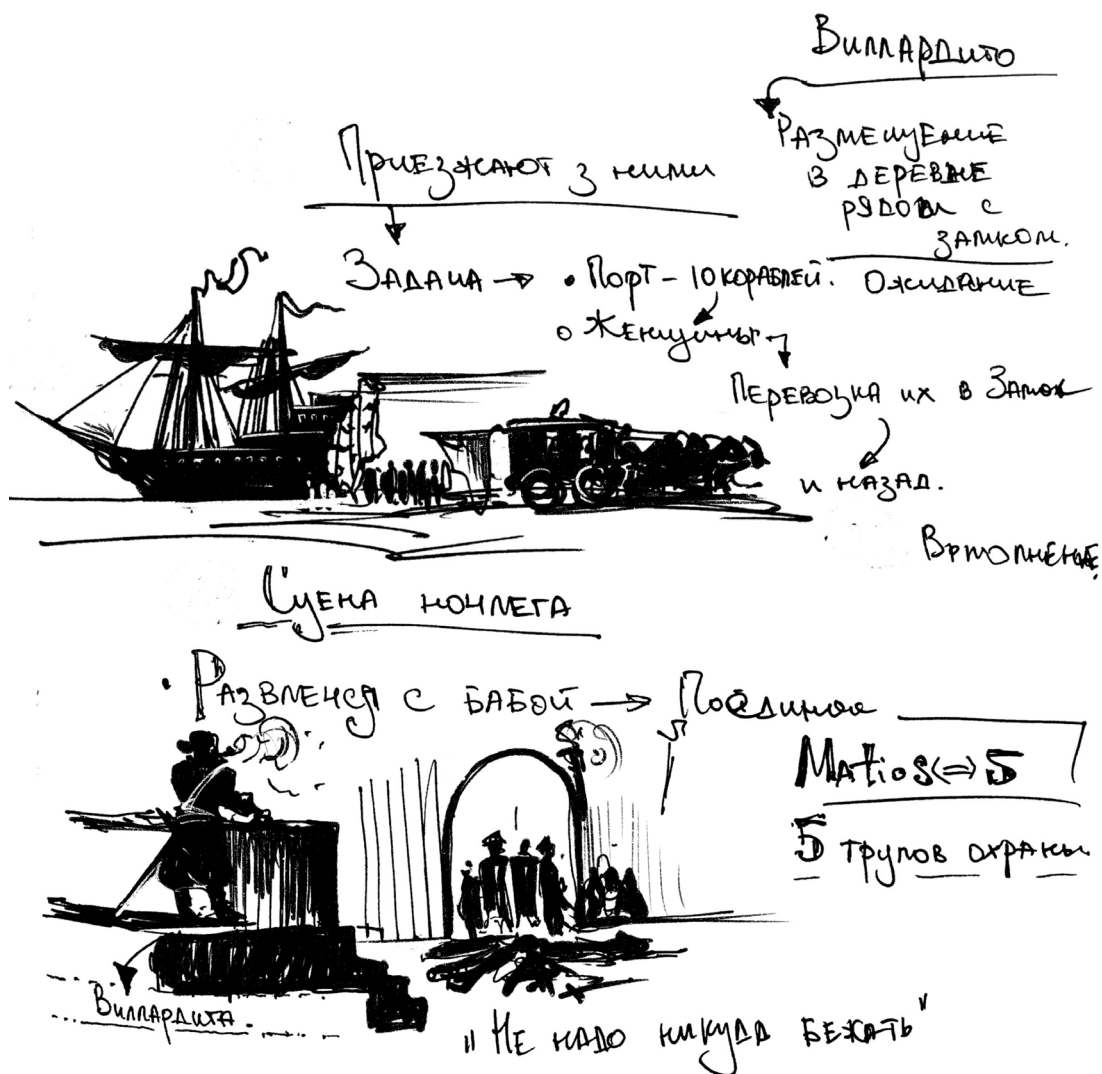 Виллардито
Размещение
в деревне
рядом с
замком.
Ожидание
Приезжают з ними
Задача → • Порт – 10 кораблей.
о Женщины
Перевозка их в Замок
и назад.
Сцена ночлега
• Развлечся с бабой → Поединок
Matios ⇔ 5
5 трупов охраны
Виллардита.
"Не надо никуда бежать"